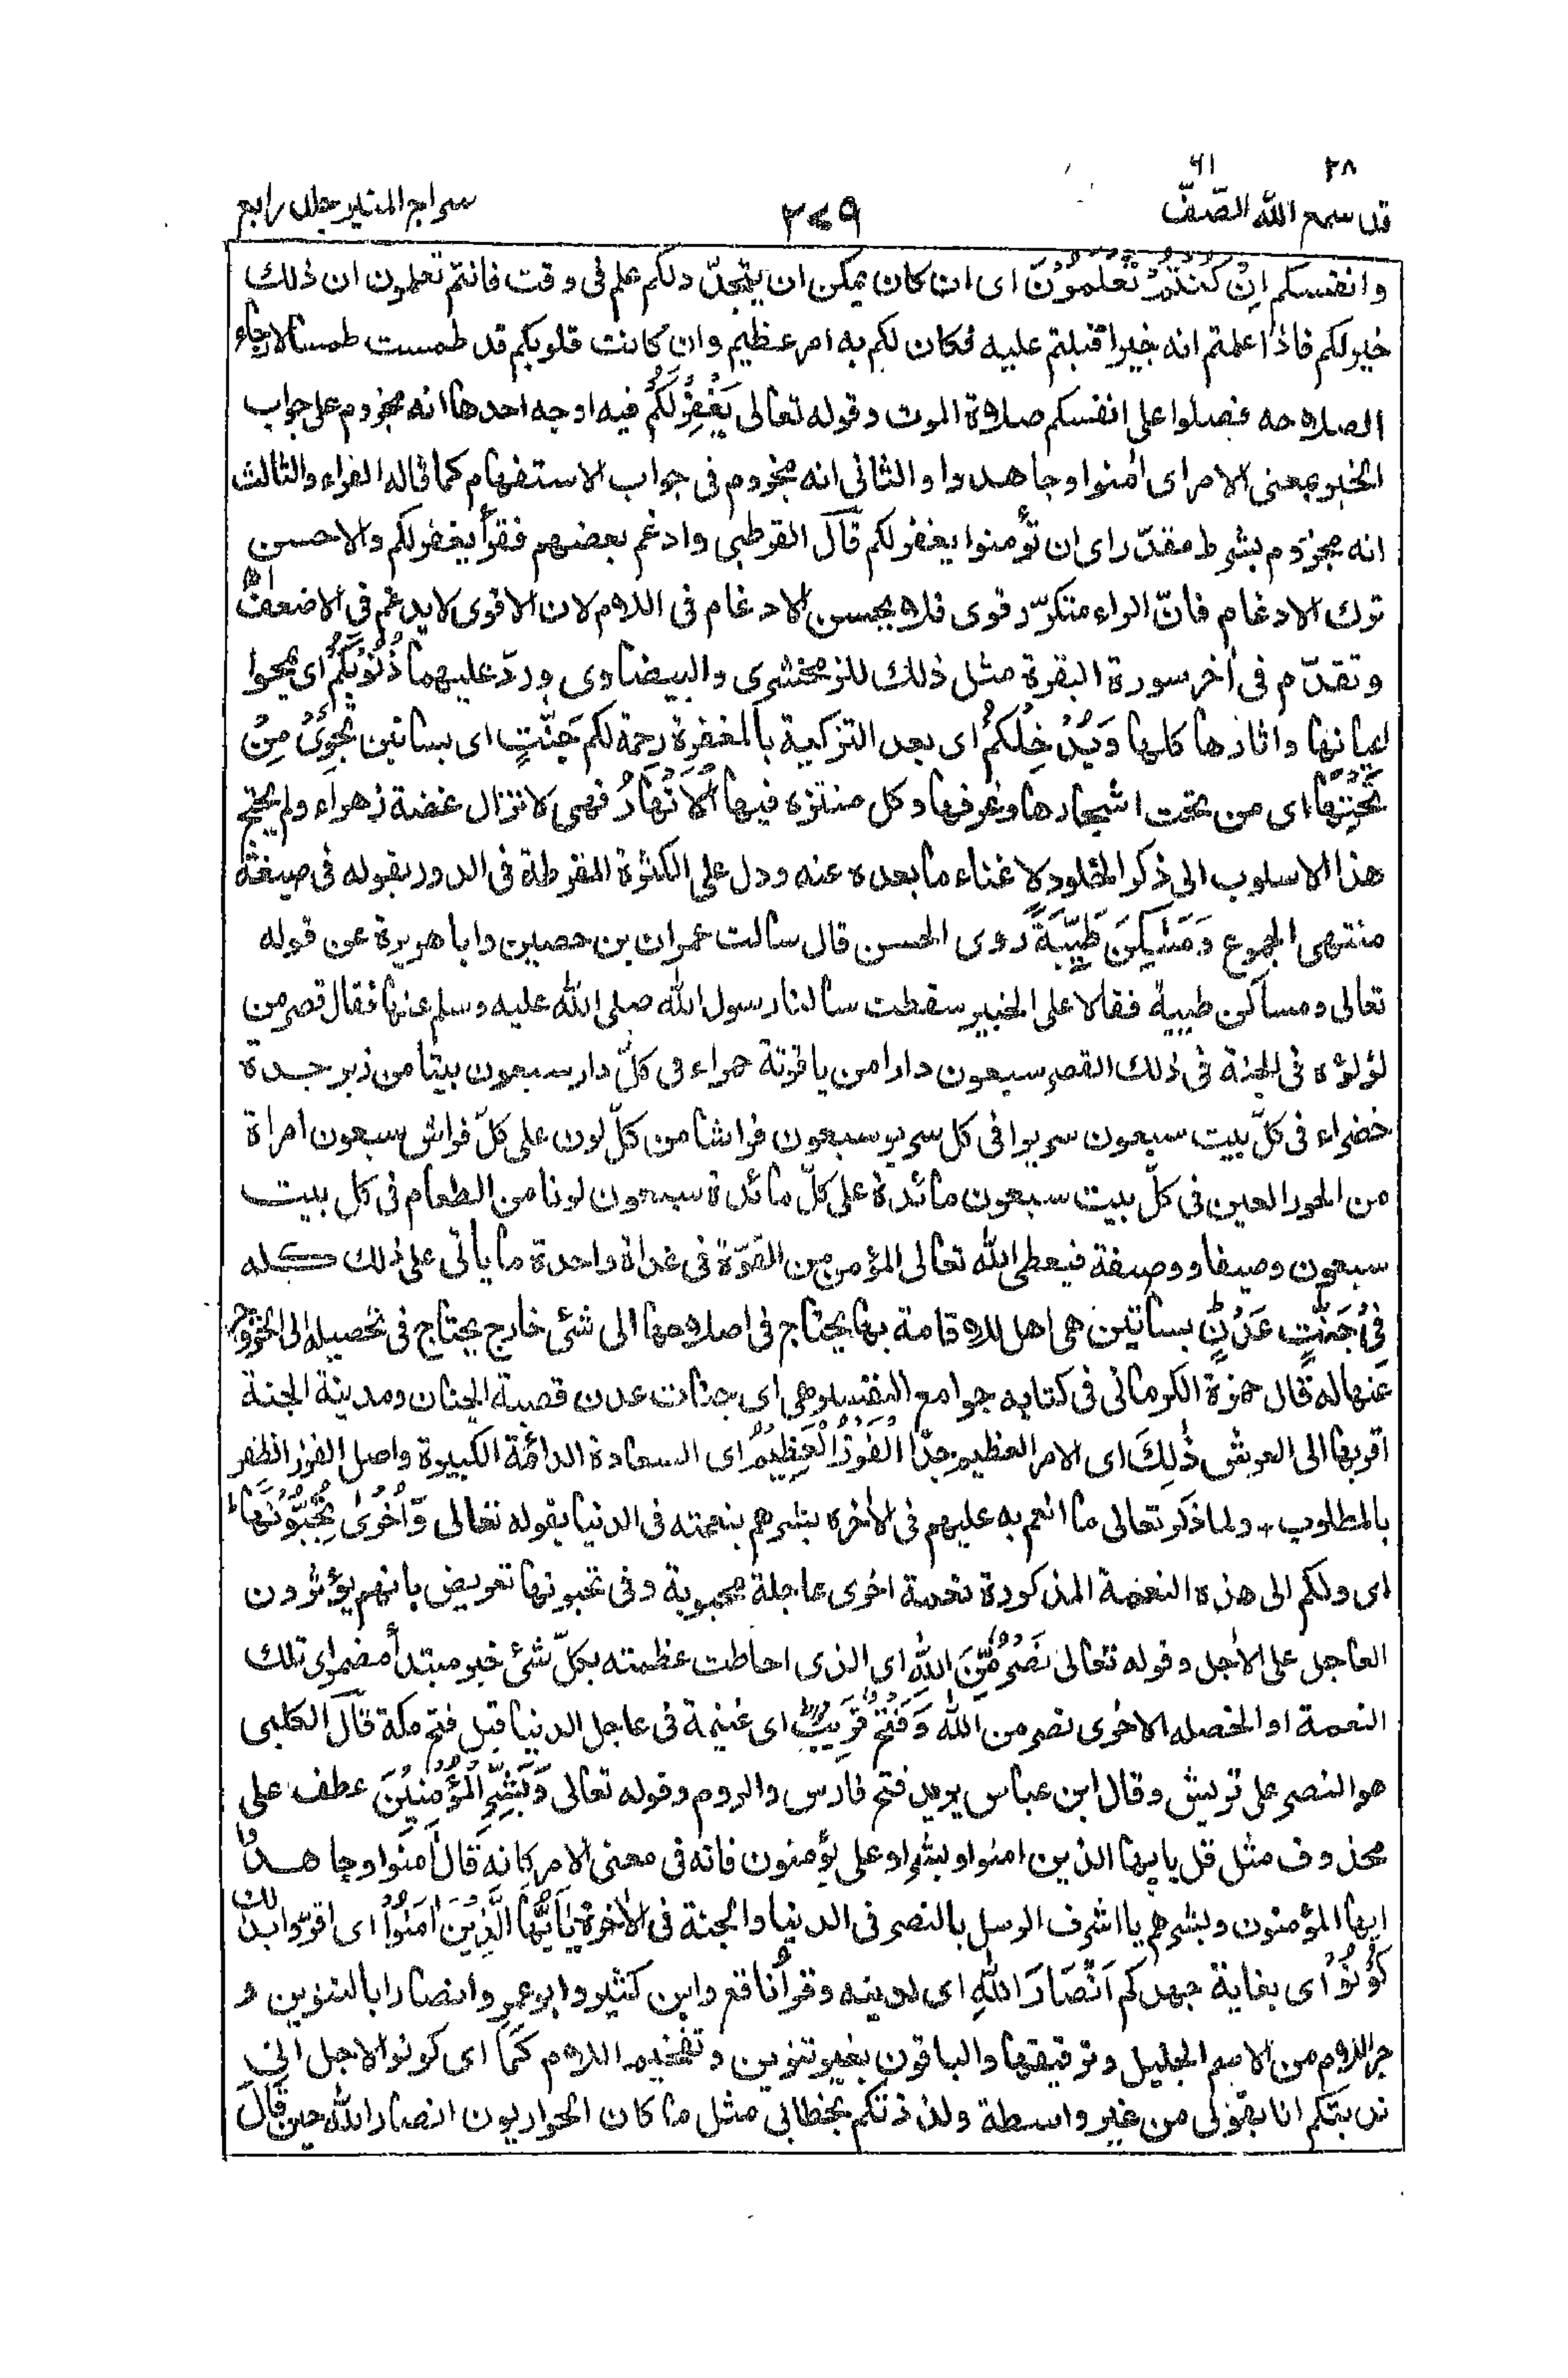 ٢٨ ٦١
قد سمع الله الصّفّ ٢٧٩ سراج المنير جلد رابع
وانفسكم اِنْ كُنْتُمْ تَعْلَمُوْنَ اى ان كان يمكن ان يتجدّد لكم علم فى وقت فانتم تعلمون ان ذلك
خير لكم فاذا علمتم انه خير اقبلتم عليه فكان لكم به امر عظيم وان كانت قلوبكم قد طمست طمسا لارجاء
الصلاحه فصلوا على انفسكم صلاة الموت وقوله تعالى يَغْفِرْ لَكُمْ فيه اوجه احدها انه مجزوم على جواب
الخبر بمعنى الامر اى اٰمنوا وجاهدوا والثانى انه مجزوم فى جواب الاستفهام كما قاله الفراء والثالث
انه مجزوم بشرط مقدّر اى ان تؤمنوا يغفر لكم قال القرطبى وادغم بعضهم فقرأ يغفر لكم والاحسن
ترك الادغام فانّ الراء متكرّر قوى فلا يحسن الادغام فى اللام لان الاقوى لا يدغم فى الاضعف اھ
وتقدّم فى اٰخر سورة البقرة مثل ذلك للزمخشرى والبيضاوى وردّ عليهما ذُنُوْبَكُمْ اى يمحوا
اعيانها واٰثارها كلها وَيُدْخِلْكُمْ اى بعد التزكية بالمغفرة رحمة لكم جَنّٰتٍ اى بساتين تَجْرِىْ مِنْ
تَحْتِهَا اى من تحت اشجارها وغرفها وكل منتزه فيها الْاَنْهَارُ فهى لا تزال غضة زهراء ولم يحتج
هذا الاسلوب الى ذكر الخلود لاغناء ما بعده عنه ودل على الكثرة المفرطة فى الدور بقوله فى صيغة
منتهى الجموع وَمَسٰكِنَ طَيِّبَةً روى الحسن قال سالت عمران بن حصين وابا هريرة عن قوله
تعالى ومساكن طيبة فقالا على الخبير سقطت سالنا رسول الله صلى الله عليه وسلم عنها فقال قصر من
لؤلؤه فى الجنة فى ذلك القصر سبعون دارا من ياقوتة حمراء فى كلّ دار سبعون بيتا من زبرجدة
خضراء فى كلّ بيت سبعون سريرا فى كل سرير سبعون فراشا من كلّ لون على كلّ فراش سبعون امراة
من الحور العين فى كلّ بيت سبعون مائدة على كلّ مائدة سبعون لونا من الطعام فى كل بيت
سبعون وصيفا ووصيفة فيعطى الله تعالى المؤمن من القوّة فى غداة واحدة ما ياتى على ذلك كله
فِىْ جَنّٰتِ عَدْنٍ بساتين هى اهل للاقامة بها يحتاج فى اصلاحها الى شئ خارج يحتاج فى تحصيله الى الخروج
عنها له قال حمزة الكرمانى فى كتابه جوامع التفسير هى اى جنات عدن قصبة الجنان ومدينة الجنة
اقربها الى العرش ذٰلِكَ اى الامر العظيم جدّا الْفَوْزُ الْعَظِيْمُ اى السعادة الدائمة الكبيرة واصل الفوز الظفر
بالمطلوب، ولما ذكر تعالى ما انعم به عليهم فى الاٰخره بشرهم بنعمته فى الدنيا بقوله تعالى وَّاُخْرٰى تُحِبُّوْنَهَا
اى ولكم الى هذه النعمة المذكورة نعمة اخرى عاجلة محبوبة وفى تحبونها تعريض بانهم يؤثرون
العاجل على الاٰجل وقوله تعالى نَصْرٌ مِّنَ اللّٰهِ اى الذى احاطت عظمته بكلّ شئ خبر مبتدأ مضمر اى تلك
النعمة او الخصله الاخرى نصر من الله وَفَتْحٌ قَرِيْبٌ اى غنيمة فى عاجل الدنيا قبل فتح مكة قال الكلبى
هو النصر على قريش وقال ابن عباس يريد فتح فارس والروم وقوله تعالى وَبَشِّرِ الْمُؤْمِنِيْنَ عطف على
محذوف مثل قل يايها الذين امنوا وبشر او على يؤمنون فانه فى معنى الامر كانه قال اٰمنوا وجاهدوا
ايها المؤمنون وبشرهم يا اشرف الرسل بالنصر فى الدنيا والجنة فى الاٰخرة يٰاَيُّهَا الَّذِيْنَ اٰمَنُوْا اى اقرّوا بذلك
كُوْنُوْا اى بغاية جهدكم اَنْصَارَ اللّٰهِ اى لدينه وقرأ نافع وابن كثير وابو عمرو انصارا بالتنوين و
جر اللام من الاسم الجليل وترقيقها والباقون بغير تنوين وتفخيم اللام كَمَا اى كونوا لاجل انى
ندبتكم انا بقولى من غير واسطة ولذذتكم بخطابى مثل ما كان الحواريون انصار الله حين قَالَ